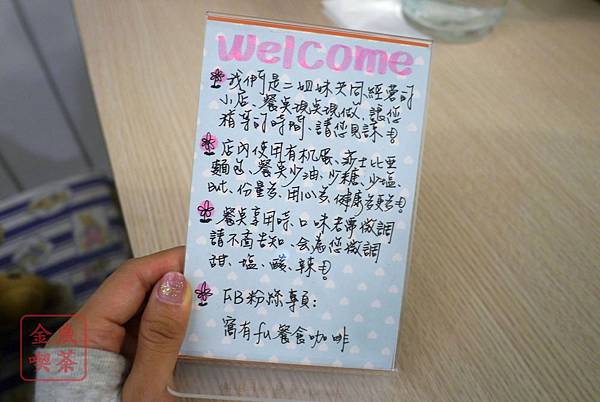 Welcome
我們是二姐妹共同經營的
小店、餐點現點現做、讓您
稍等的時間、請您見諒!
店內使用有机蛋、斯比亞
麵包、餐點少油、少糖、少塩、
but、份量多、用心多、健康多更多!
餐點享用時、口味若需微調
請不吝告知、會為您微調
甜、塩、酸、辣!
FB粉絲專頁:
窩有fu餐食咖啡
金魚
喫茶